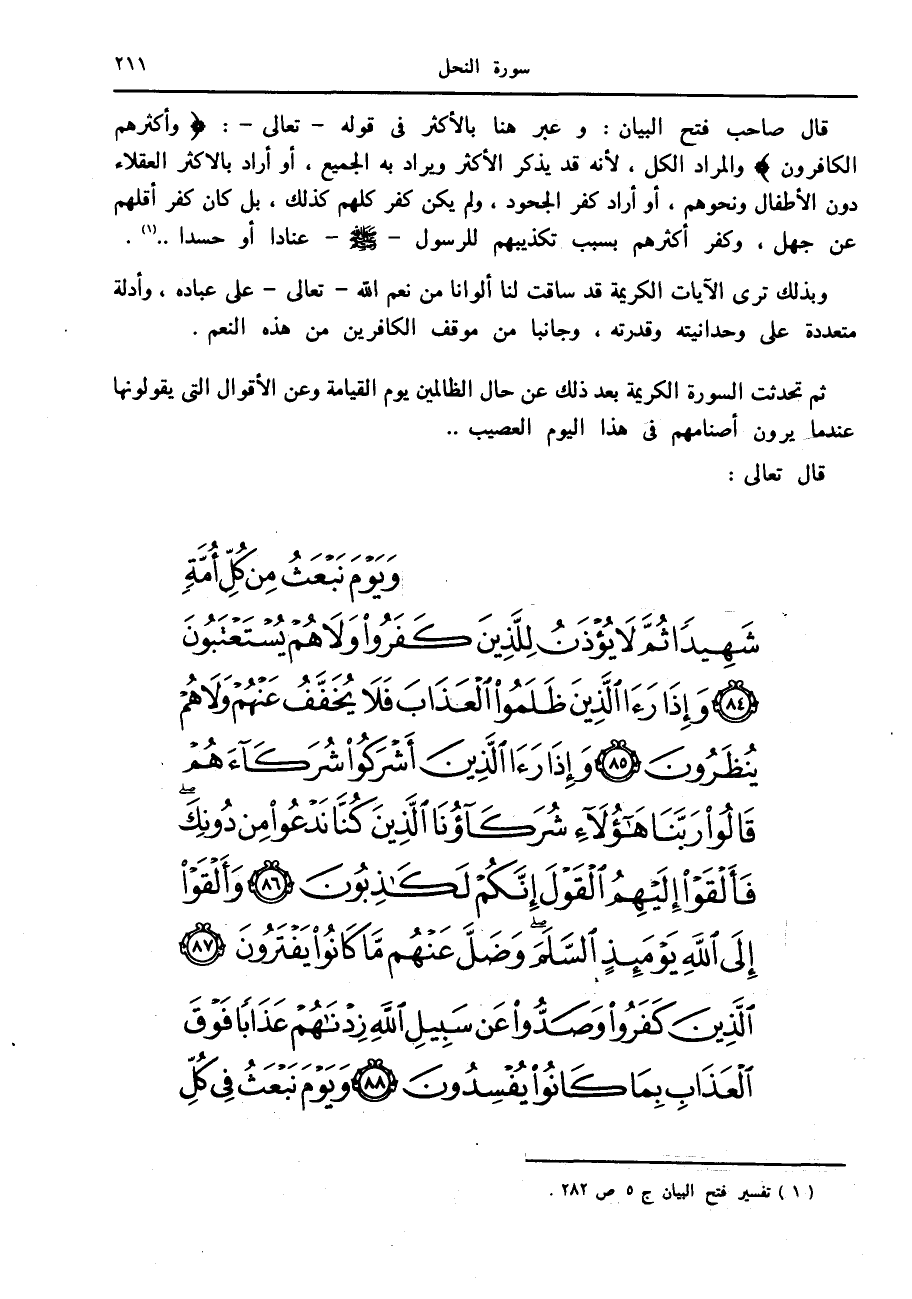 سورة النحل ٢١١
قال صاحب فتح البيان : و عبر هنا بالأكثر فى قوله - تعالى - : ﴿ وأكثرهم
الكافرون ﴾ والمراد الكل ، لأنه قد يذكر الأكثر ويراد به الجميع ، أو أراد بالاكثر العقلاء
دون الأطفال ونحوهم ، أو أراد كفر الجحود ، ولم يكن كفر كلهم كذلك ، بل كان كفر أقلهم
عن جهل ، وكفر أكثرهم بسبب تكذيبهم للرسول - ﷺ - عنادا أو حسدا ..(١) .
وبذلك ترى الآيات الكريمة قد ساقت لنا ألوانا من نعم الله - تعالى - على عباده ، وأدلة
متعددة على وحدانيته وقدرته ، وجانبا من موقف الكافرين من هذه النعم .
ثم تحدثت السورة الكريمة بعد ذلك عن حال الظالمين يوم القيامة وعن الأقوال التى يقولونها
عندما يرون أصنامهم فى هذا اليوم العصيب ..
قال تعالى :
وَيَوْمَ نَبْعَثُ مِن كُلِّ أُمَّةٍ
شَهِيدًا ثُمَّ لَا يُؤْذَنُ لِلَّذِينَ كَفَرُوا۟ وَلَا هُمْ يُسْتَعْتَبُونَ
٨٤ وَإِذَا رَءَا ٱلَّذِينَ ظَلَمُوا۟ ٱلْعَذَابَ فَلَا يُخَفَّفُ عَنْهُمْ وَلَا هُمْ
يُنظَرُونَ ٨٥ وَإِذَا رَءَا ٱلَّذِينَ أَشْرَكُوا۟ شُرَكَآءَهُمْ
قَالُوا۟ رَبَّنَا هَٰٓؤُلَآءِ شُرَكَآؤُنَا ٱلَّذِينَ كُنَّا نَدْعُوا۟ مِن دُونِكَۖ
فَأَلْقَوْا۟ إِلَيْهِمُ ٱلْقَوْلَ إِنَّكُمْ لَكَٰذِبُونَ ٨٦ وَأَلْقَوْا۟
إِلَى ٱللَّهِ يَوْمَئِذٍ ٱلسَّلَمَۖ وَضَلَّ عَنْهُم مَّا كَانُوا۟ يَفْتَرُونَ ٨٧
ٱلَّذِينَ كَفَرُوا۟ وَصَدُّوا۟ عَن سَبِيلِ ٱللَّهِ زِدْنَٰهُمْ عَذَابًا فَوْقَ
ٱلْعَذَابِ بِمَا كَانُوا۟ يُفْسِدُونَ ٨٨ وَيَوْمَ نَبْعَثُ فِى كُلِّ
( ١ ) تفسير فتح البيان ج ٥ ص ٢٨٢ .